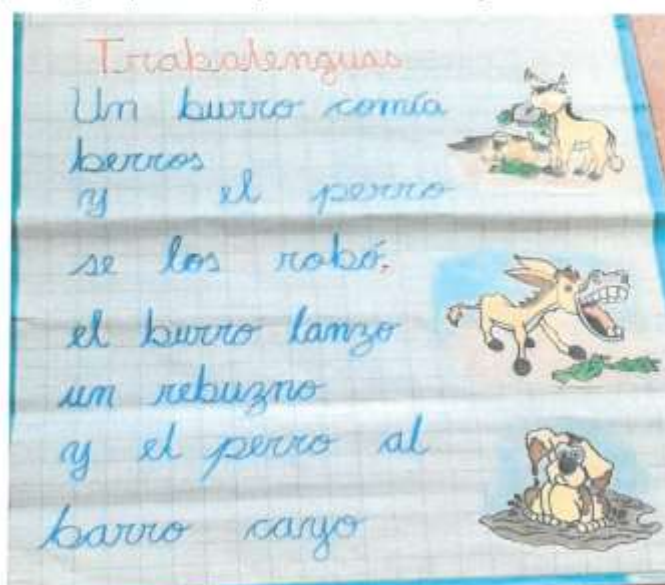 Trabalenguas
Un burro comía
berros
y el perro
se los robó,
el burro lanzo
un rebuzno
y el perro al
barro cayo